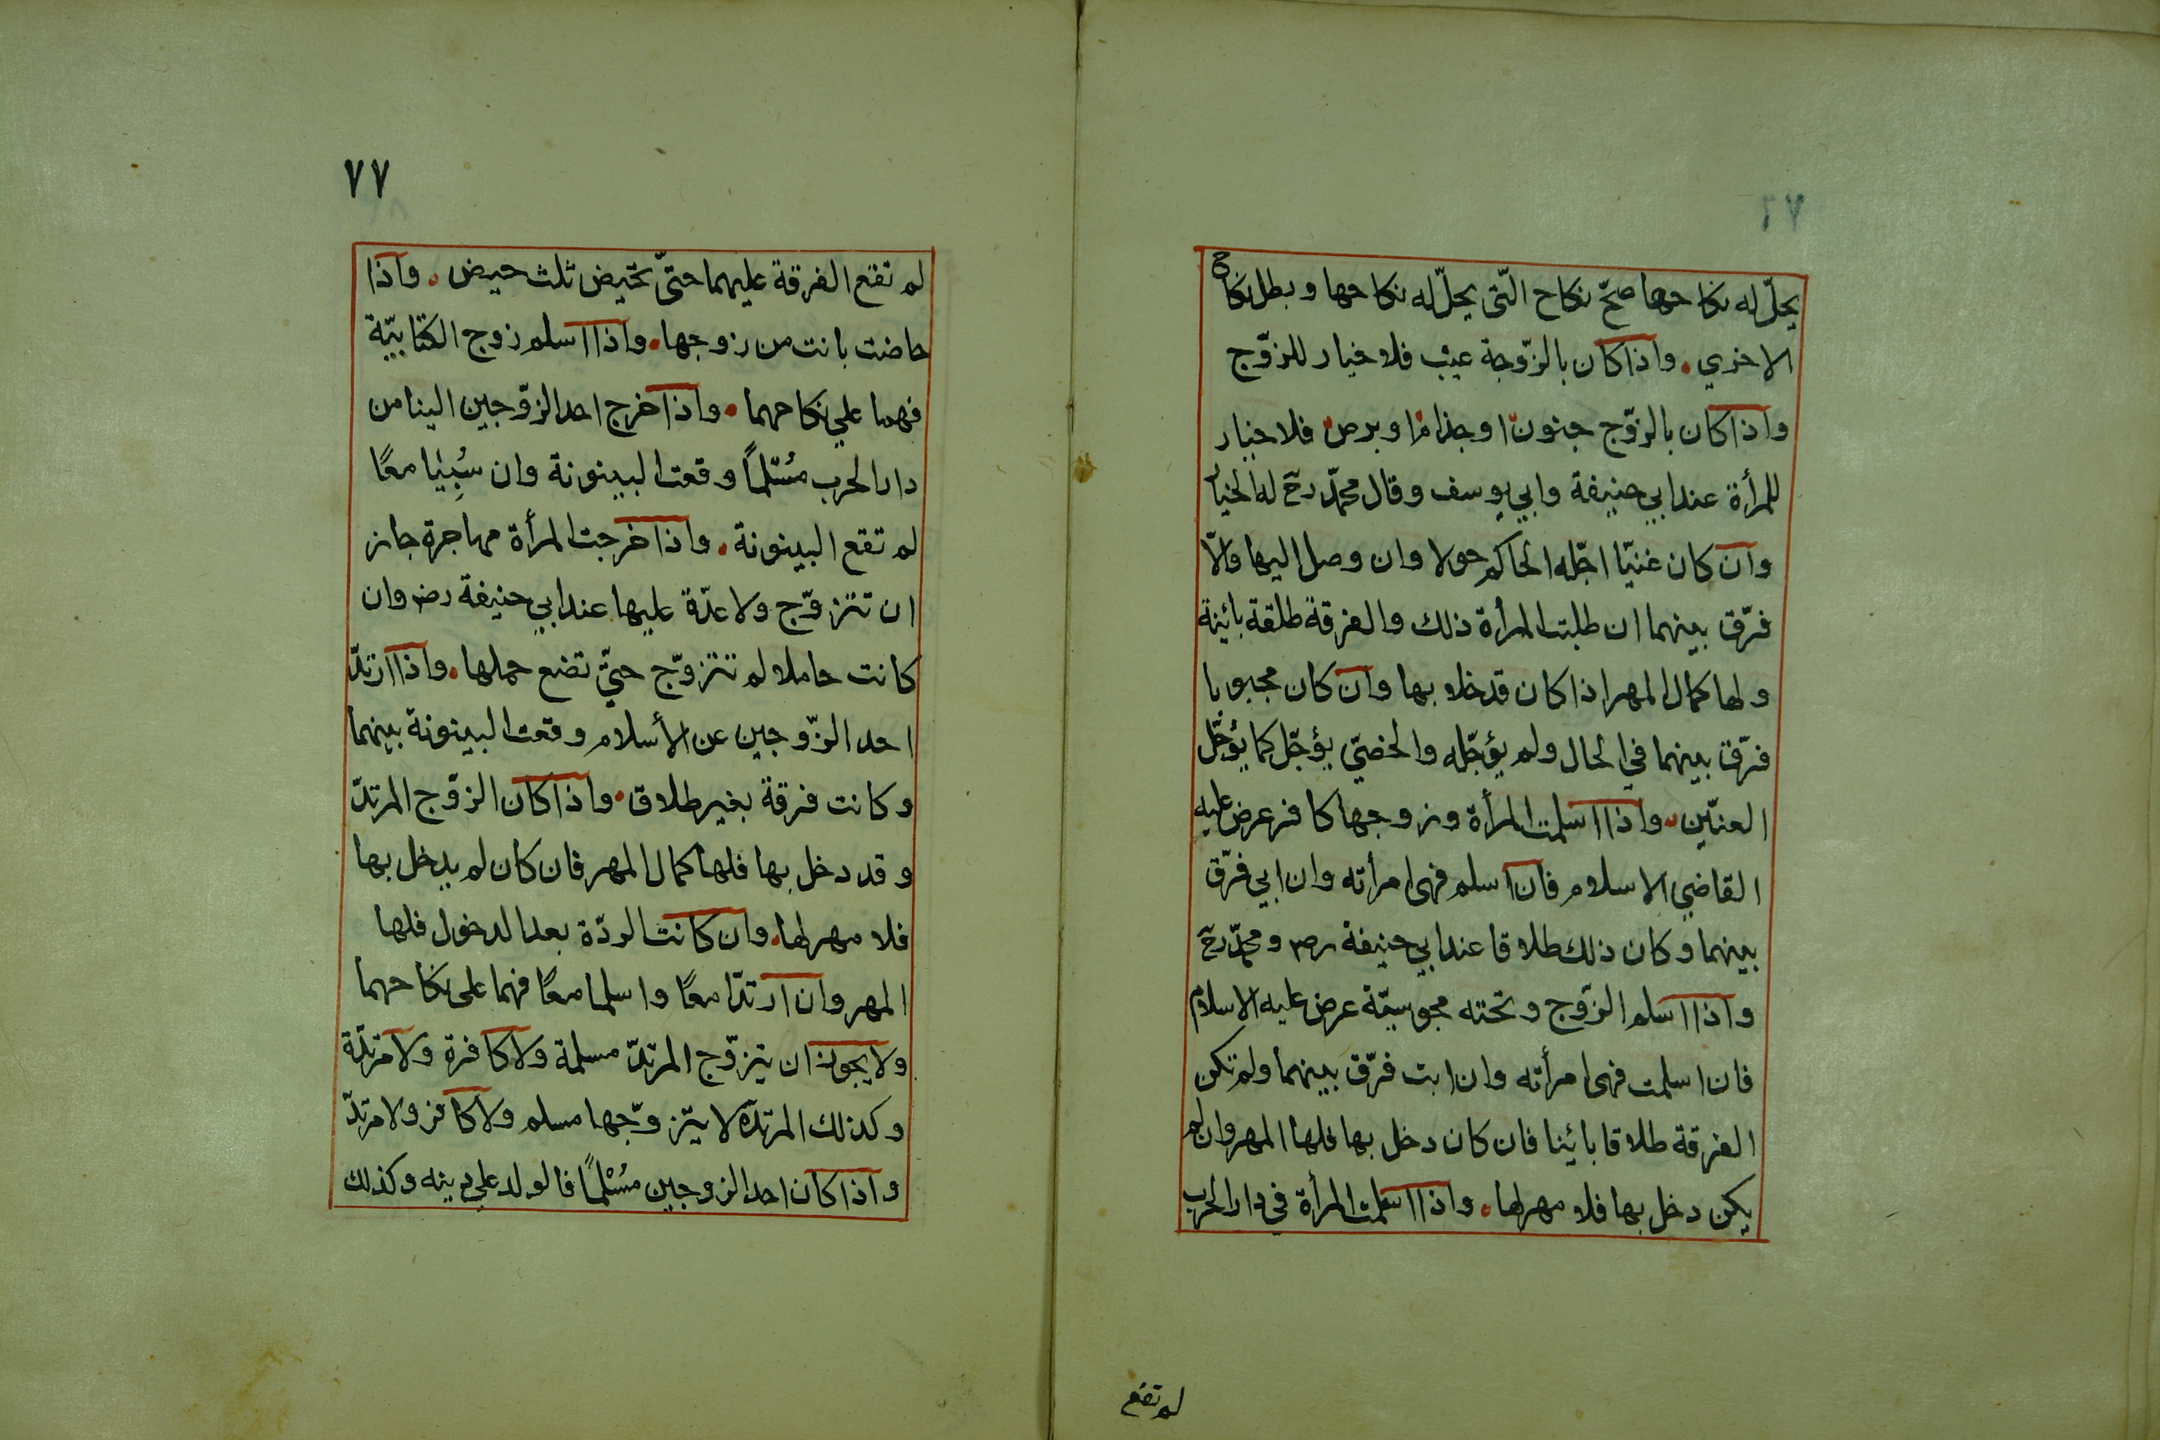 يحلّ له نكاحها صحّ نكاح الّتى يحلّ له نكاحها وبطل نكاح
الاخري. واذا كان بالزّوجة عيب فلا خيار للزّوج
واذا كان بالزّوج جنون او جذام او برص فلا خيار
للمرأة عند ابي حنيفة وابي يوسف وقال محمّد رح له الخيار
وان كان عنيّنا اجّله الحاكم حولا وان وصل اليها والّا
فرّق بينهما ان طلبت المرأة ذلك والفرقة طلقة بائنة
ولها كمال المهر اذا كان قد خلا بها وان كان مجبوبا
فرّق بينهما في الحال ولم يؤجّله والخصيّ يؤجّل كما يؤجّل
العنّين. واذا اسلمت المرأة وزوجها كافر عرض عليه
القاضي الاسلام فان اسلم فهى امرأته وان ابي فرّق
بينهما وكان ذلك طلاقا عند ابي حنيفة رض ومحمّد رح
واذا اسلم الزّوج وتحته مجوسيّة عرض عليه الاسلام
فان اسلمت فهى امرأته وان ابت فرّق بينهما ولم تكن
الفرقة طلاقا بائنا فان كان دخل بها فلها المهر وان لم
يكن دخل بها فلا مهر لها. واذا اسلمت المرأة في دار الحرب
لم تقع
٧٧
لم تقع الفرقة عليهما حتىّ تحيض ثلث حيض. واذا
حاضت بانت من زوجها. واذا اسلم زوج الكتابيّة
فهما علي نكاحهما. واذا خرج احد الزّوجين الينا من
دار الحرب مُسْلمًا وقعت البينونة وان سُبِيَا معًا
لم تقع البينونة. واذا خرجت المرأة مهاجرة جاز
ان تتزوّج ولا عدّة عليها عند ابي حنيفة رض وان
كانت حاملا لم تتزوّج حتيّ تضع حملها. واذا ارتدّ
احد الزّوجين عن الأسلام وقعت البينونة بينهما
وكانت فرقة بغير طلاق. واذا كان الزّوج المرتدّ
وقد دخل بها فلها كمال المهر فان كان لم يدخل بها
فلا مهر لها. وان كانت الردّة بعد الدخول فلها
المهر وان ارتدّا معًا واسلما معًا فهما على نكاحهما
ولا يجوز ان يتزوّج المرتدّ مسلمة ولا كافرة ولا مرتدّة
وكذلك المرتدّة لا يتزوّجها مسلم ولا كافر ولا مرتدّ
واذا كان احد الزوجين مُسْلمًا فالولد علي دينه وكذلك